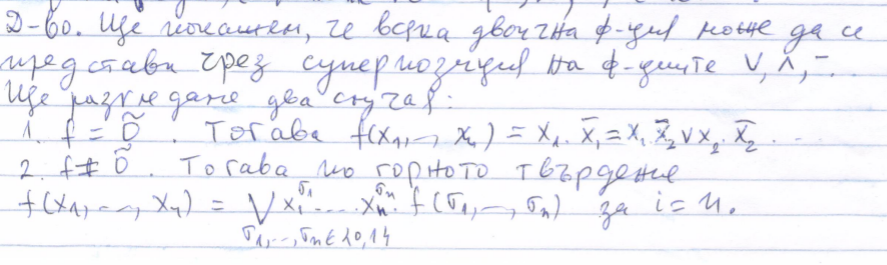 Д-во. Ще покажем, че всяка двоична ф-ция може да се
представи чрез суперпозиция на ф-циите ∨, ∧, ¯.
Ще разгледаме два случая:
1. f = õ. Тогава f(x₁,..., xₙ) = x₁.x̄₁ = x₁.x̄₂ ∨ x₂.x̄₂ ...
2. f ≠ õ. Тогава по горното твърдение
f(x₁,..., xₙ) = ⋁ x₁^σ₁ .... xₙ^σₙ. f(σ₁,..., σₙ) за i = n.
σ₁,..., σₙ ∈ {0,1}